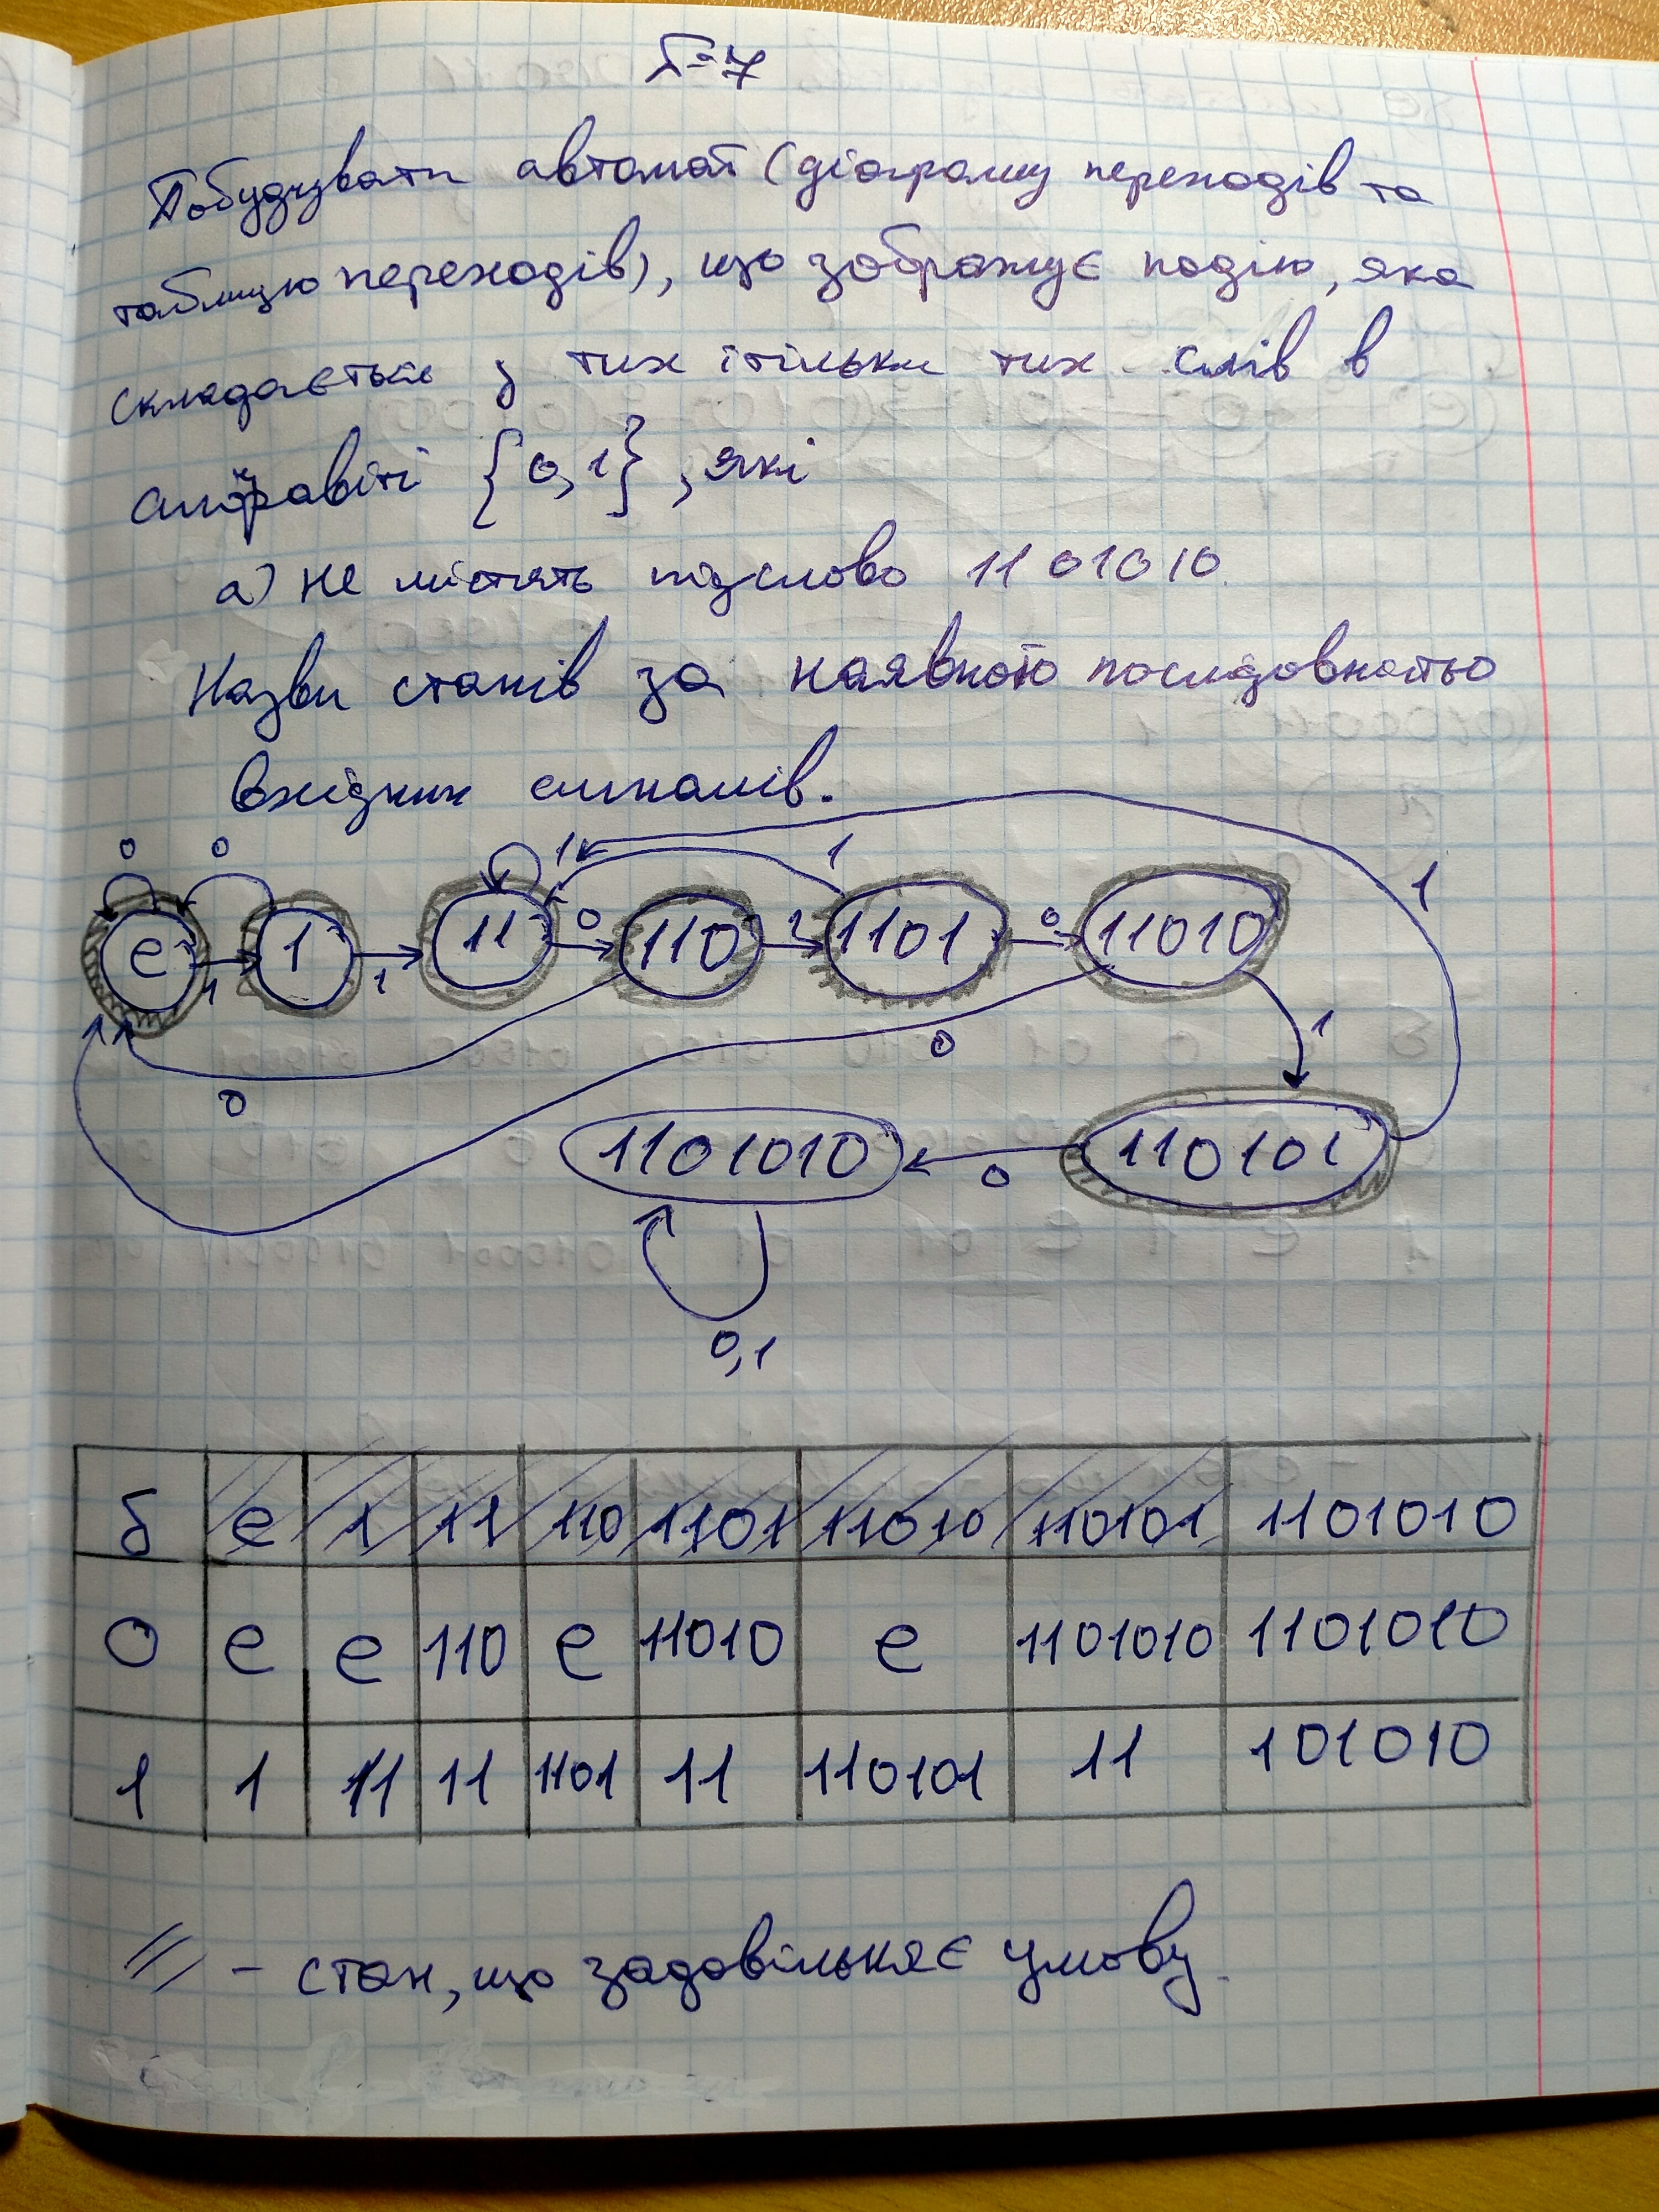 Б-7
Побудувати автомат (діаграму переходів та
таблицю переходів), що зображує подію, яка
складається з тих і тільки тих слів в
алфавіті {0,1}, які
а) не містять підслово 1101010.
Назви станів за наявною послідовністю
вхідних сигналів.
0 0 1 1 1
e 1 11 0 110 1 1101 0 11010
1 1
0 0 1
1101010 0 110101
0,1
δ e 1 11 110 1101 11010 110101 1101010
0 e e 110 e 11010 e 1101010 1101010
1 1 11 11 1101 11 110101 11 101010
// - стан, що задовільняє умову.